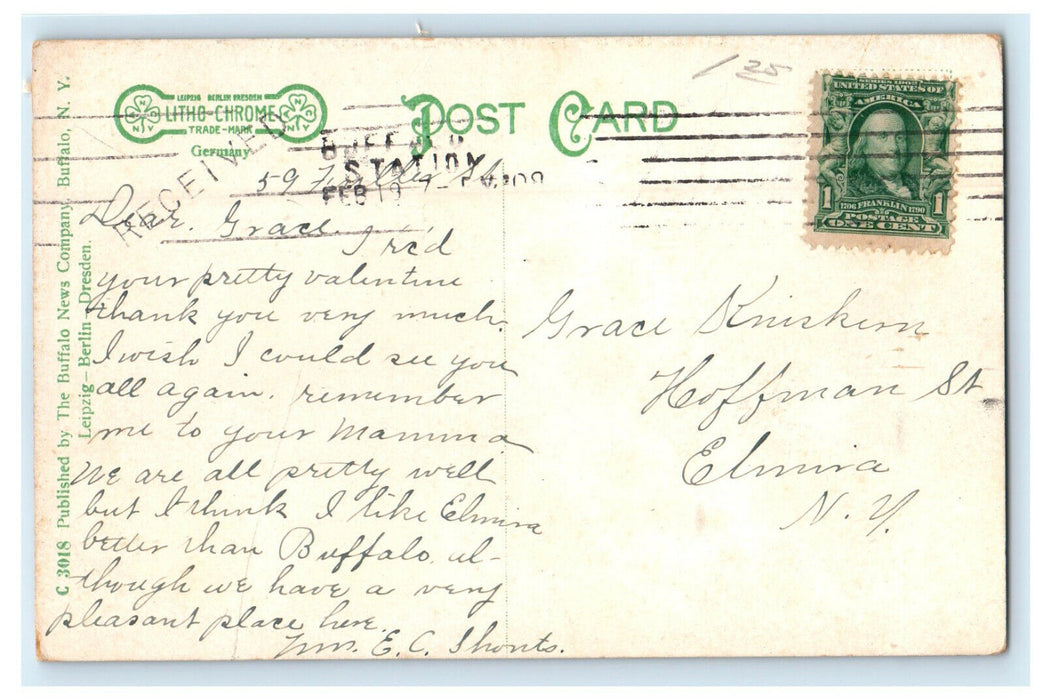 LEIPZIG BERLIN DRESDEN
LITHO-CHROME
TRADE-MARK
Germany
POST CARD
RECEIVED
STATION
FEB 19
SERIES 1902
UNITED STATES OF
AMERICA
1706 FRANKLIN 1790
POSTAGE
1 ONE CENT 1
C 3018 Published by The Buffalo News Company, Buffalo, N. Y.
Leipzig—Berlin—Dresden.
59
Dear Grace.
I rc'd
your pretty valentine
thank you very much.
I wish I could see you
all again. remember
me to your Mamma
We are all pretty well
but I think I like Elmira
better than Buffalo al-
though we have a very
pleasant place here.
Mrs. E. C. Shonts.
Grace Kniskern
Hoffman St
Elmira
N. Y.